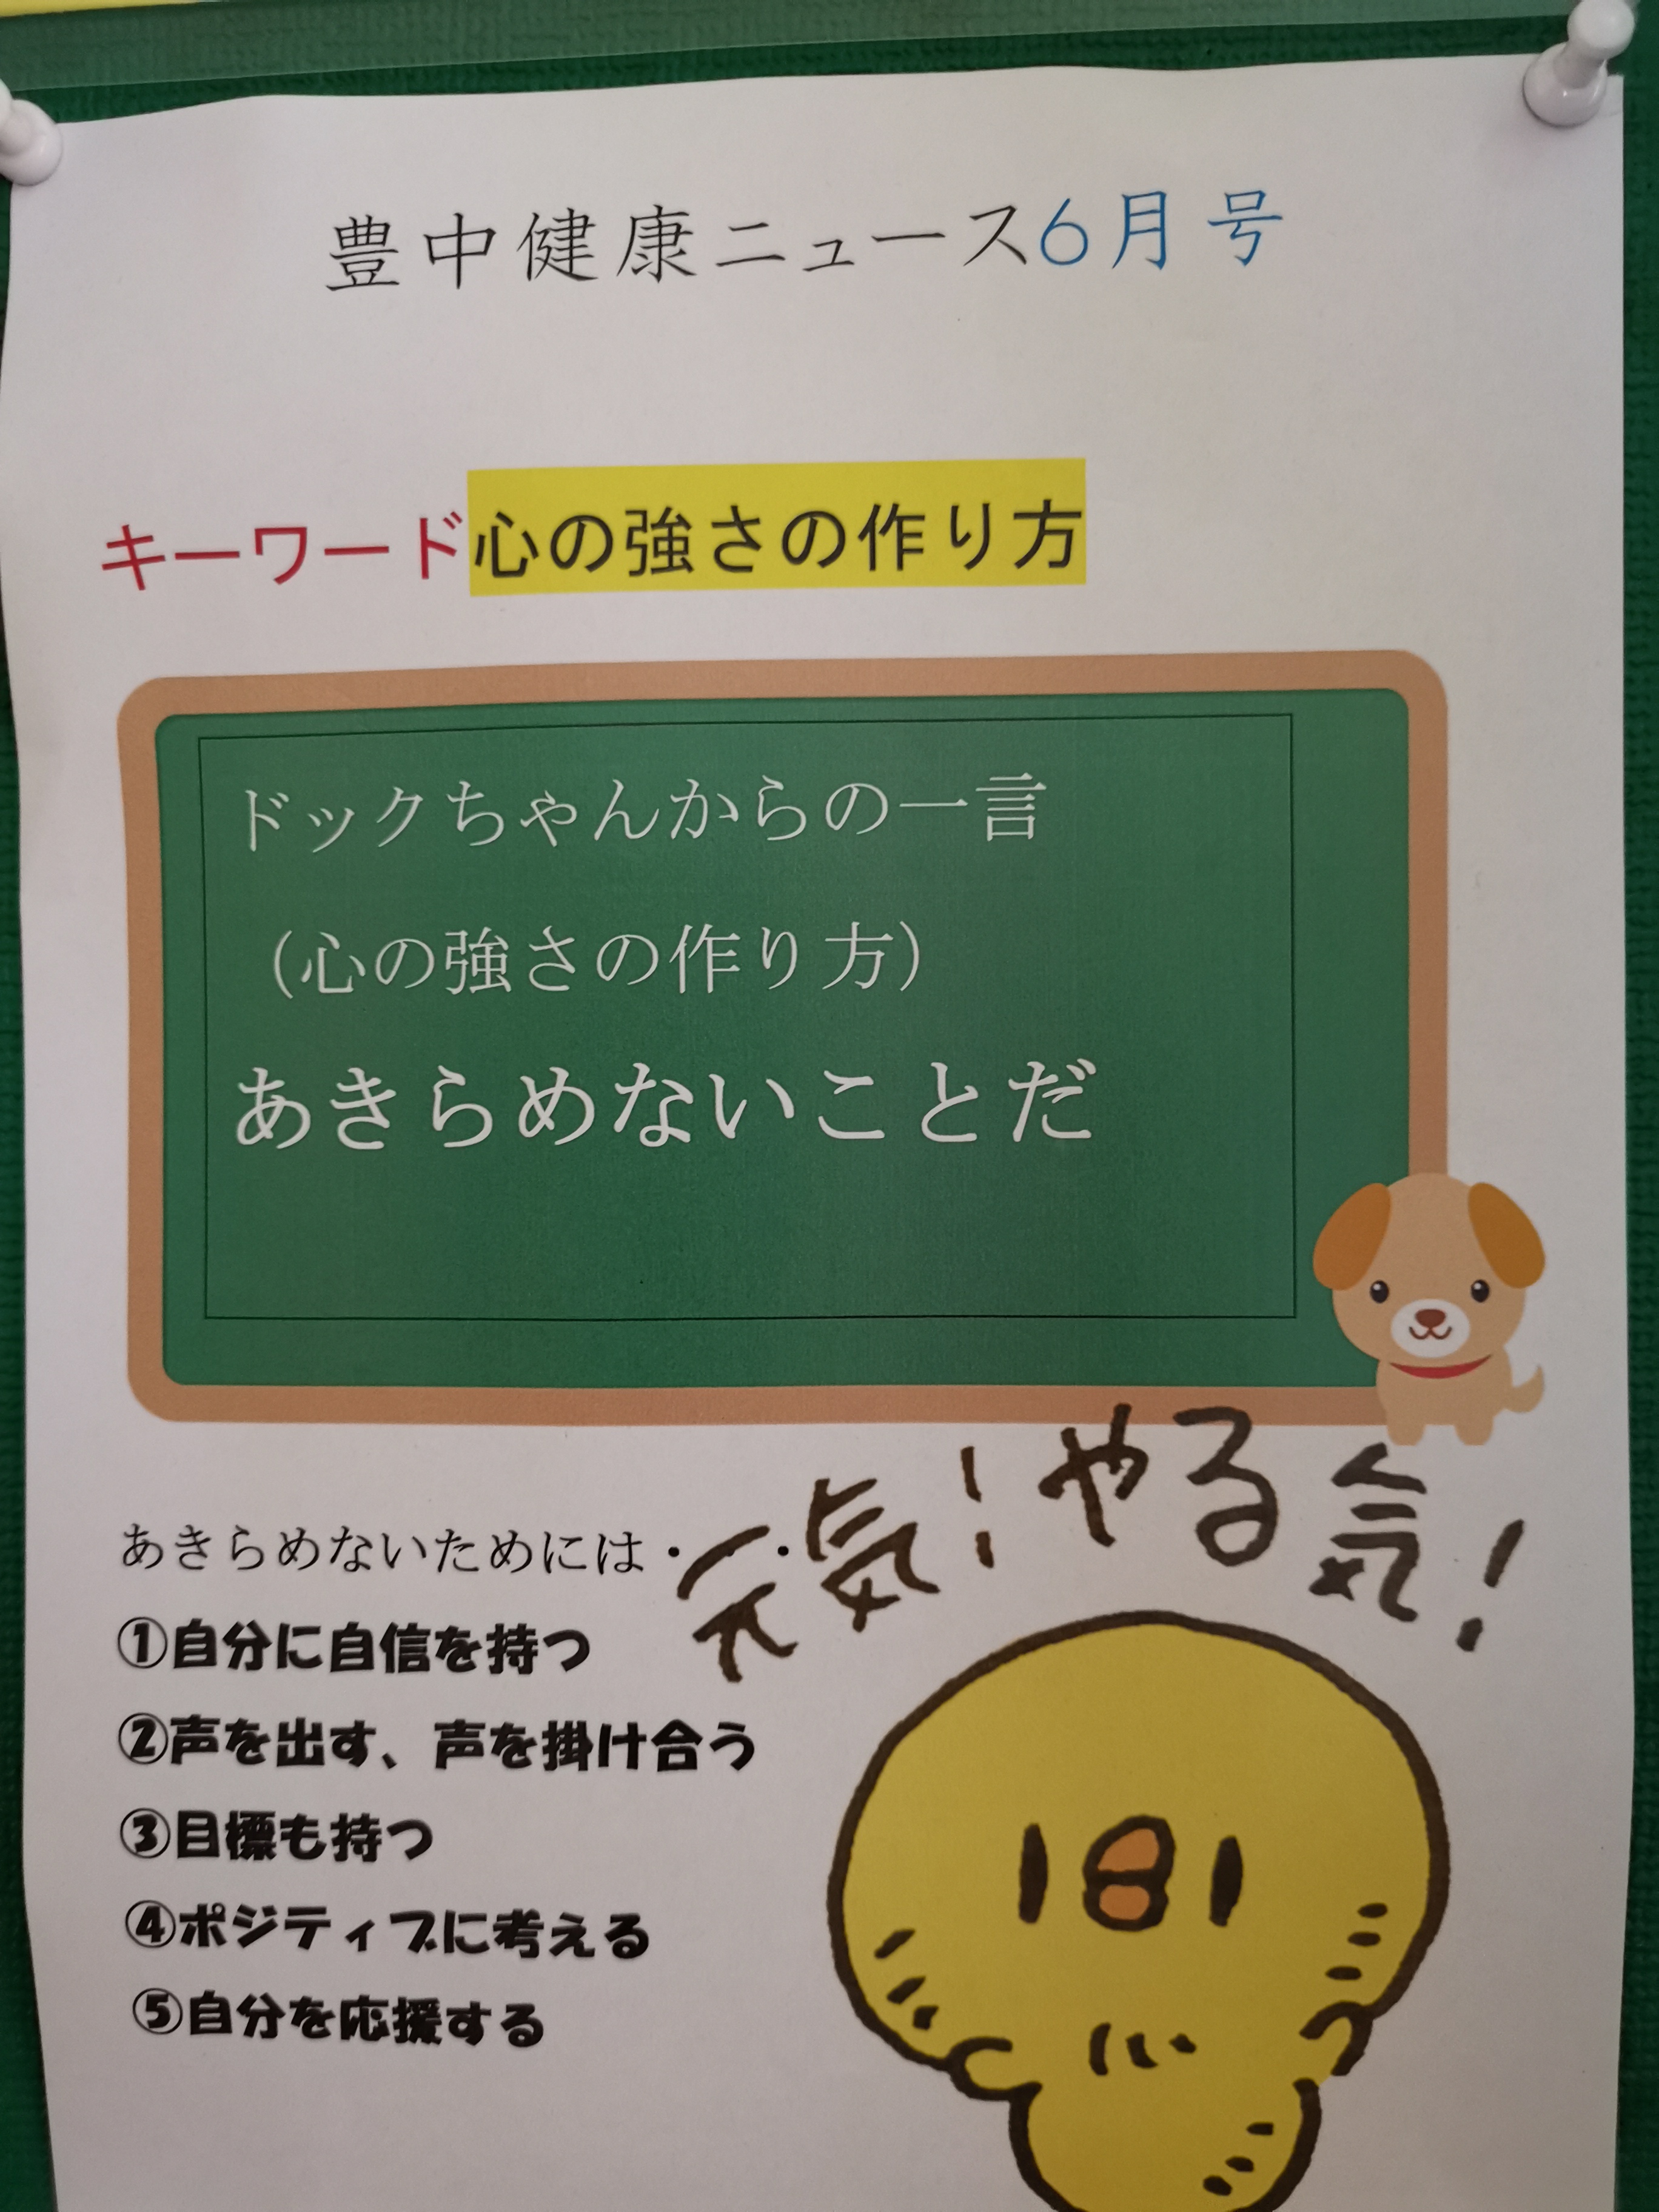 豊中健康ニュース6月号
キーワード心の強さの作り方
ドックちゃんからの一言
（心の強さの作り方）
あきらめないことだ
元気！やる気！
あきらめないためには・・・
①自分に自信を持つ
②声を出す、声を掛け合う
③目標も持つ
④ポジティブに考える
⑤自分を応援する